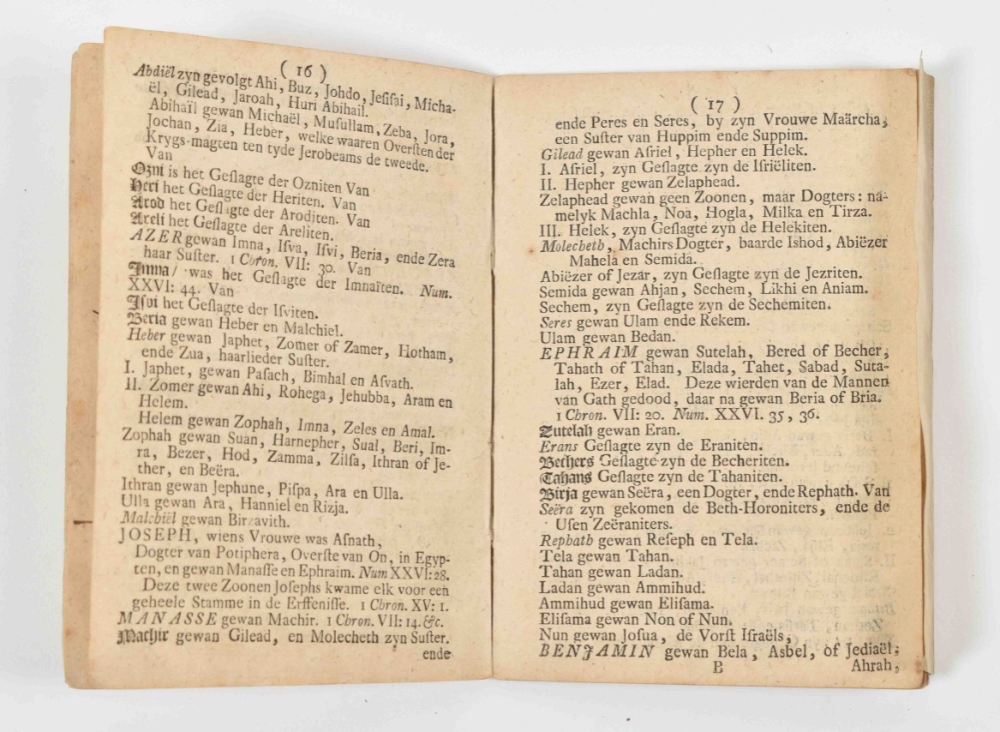 ( 16 )
Abdiël zyn gevolgt Ahi, Buz, Johdo, Jeſiſai, Micha-
ël, Gilead, Jaroah, Huri Abihail.
Abihaïl gewan Michaël, Muſullam, Zeba, Jora,
Jochan, Zia, Heber, welke waaren Overſten der
Krygs-magten ten tyde Jerobeams de tweede.
Van
Ozni is het Geſlagte der Ozniten Van
Heri het Geſlagte der Heriten. Van
Arod het Geſlagte der Aroditen. Van
Areli het Geſlagte der Areliten.
AZER gewan Imna, Iſva, Iſvi, Beria, ende Zera
haar Suſter. 1 Chron. VII: 30. Van
Imna/ was het Geſlagte der Imnaïten. Num.
XXVI: 44. Van
Iſvi het Geſlagte der Iſviten.
Beria gewan Heber en Malchiel.
Heber gewan Japhet, Zomer of Zamer, Hotham,
ende Zua, haarlieder Suſter.
I. Japhet, gewan Paſach, Bimhal en Aſvath.
II. Zomer gewan Ahi, Rohega, Jehubba, Aram en
Helem.
Helem gewan Zophah, Imna, Zeles en Amal.
Zophah gewan Suan, Harnepher, Sual, Beri, Im-
ra, Bezer, Hod, Zamma, Zilſa, Ithran of Je-
ther, en Beëra.
Ithran gewan Jephune, Piſpa, Ara en Ulla.
Ulla gewan Ara, Hanniel en Rizja.
Malchiël gewan Birzavith.
JOSEPH, wiens Vrouwe was Aſnath,
Dogter van Potiphera, Overſte van On, in Egyp-
ten, en gewan Manaſſe en Ephraim. Num XXVI: 28.
Deze twee Zoonen Joſephs kwame elk voor een
geheele Stamme in de Erffeniſſe. 1 Chron. XV: 1.
MANASSE gewan Machir. 1 Chron. VII: 14. &c.
Machir gewan Gilead, en Molecheth zyn Suſter.
ende
( 17 )
ende Peres en Seres, by zyn Vrouwe Maärcha,
een Suſter van Huppim ende Suppim.
Gilead gewan Aſriel, Hepher en Helek.
I. Aſriel, zyn Geſlagte zyn de Iſriëliten.
II. Hepher gewan Zelaphead.
Zelaphead gewan geen Zoonen, maar Dogters: na-
melyk Machla, Noa, Hogla, Milka en Tirza.
III. Helek, zyn Geſlagte zyn de Helekiten.
Molecheth, Machirs Dogter, baarde Ishod, Abiëzer
Mahela en Semida.
Abiëzer of Jezar, zyn Geſlagte zyn de Jezriten.
Semida gewan Ahjan, Sechem, Likhi en Aniam.
Sechem, zyn Geſlagte zyn de Sechemiten.
Seres gewan Ulam ende Rekem.
Ulam gewan Bedan.
EPHRAIM gewan Sutelah, Bered of Becher,
Tahath of Tahan, Elada, Tahet, Sabad, Suta-
lah, Ezer, Elad. Deze wierden van de Mannen
van Gath gedood, daar na gewan Beria of Bria.
1 Chron. VII: 20. Num. XXVI. 35, 36.
Zutelah gewan Eran.
Erans Geſlagte zyn de Eraniten.
Bechers Geſlagte zyn de Becheriten.
Tahans Geſlagte zyn de Tahaniten.
Birja gewan Seëra, een Dogter, ende Rephath. Van
Seëra zyn gekomen de Beth-Horoniters, ende de
Uſen Zeëraniters.
Rephath gewan Reſeph en Tela.
Tela gewan Tahan.
Tahan gewan Ladan.
Ladan gewan Ammihud.
Ammihud gewan Eliſama.
Eliſama gewan Non of Nun.
Nun gewan Joſua, de Vorſt Iſraëls,
BENJAMIN gewan Bela, Asbel, of Jediaël,
B Ahrah,